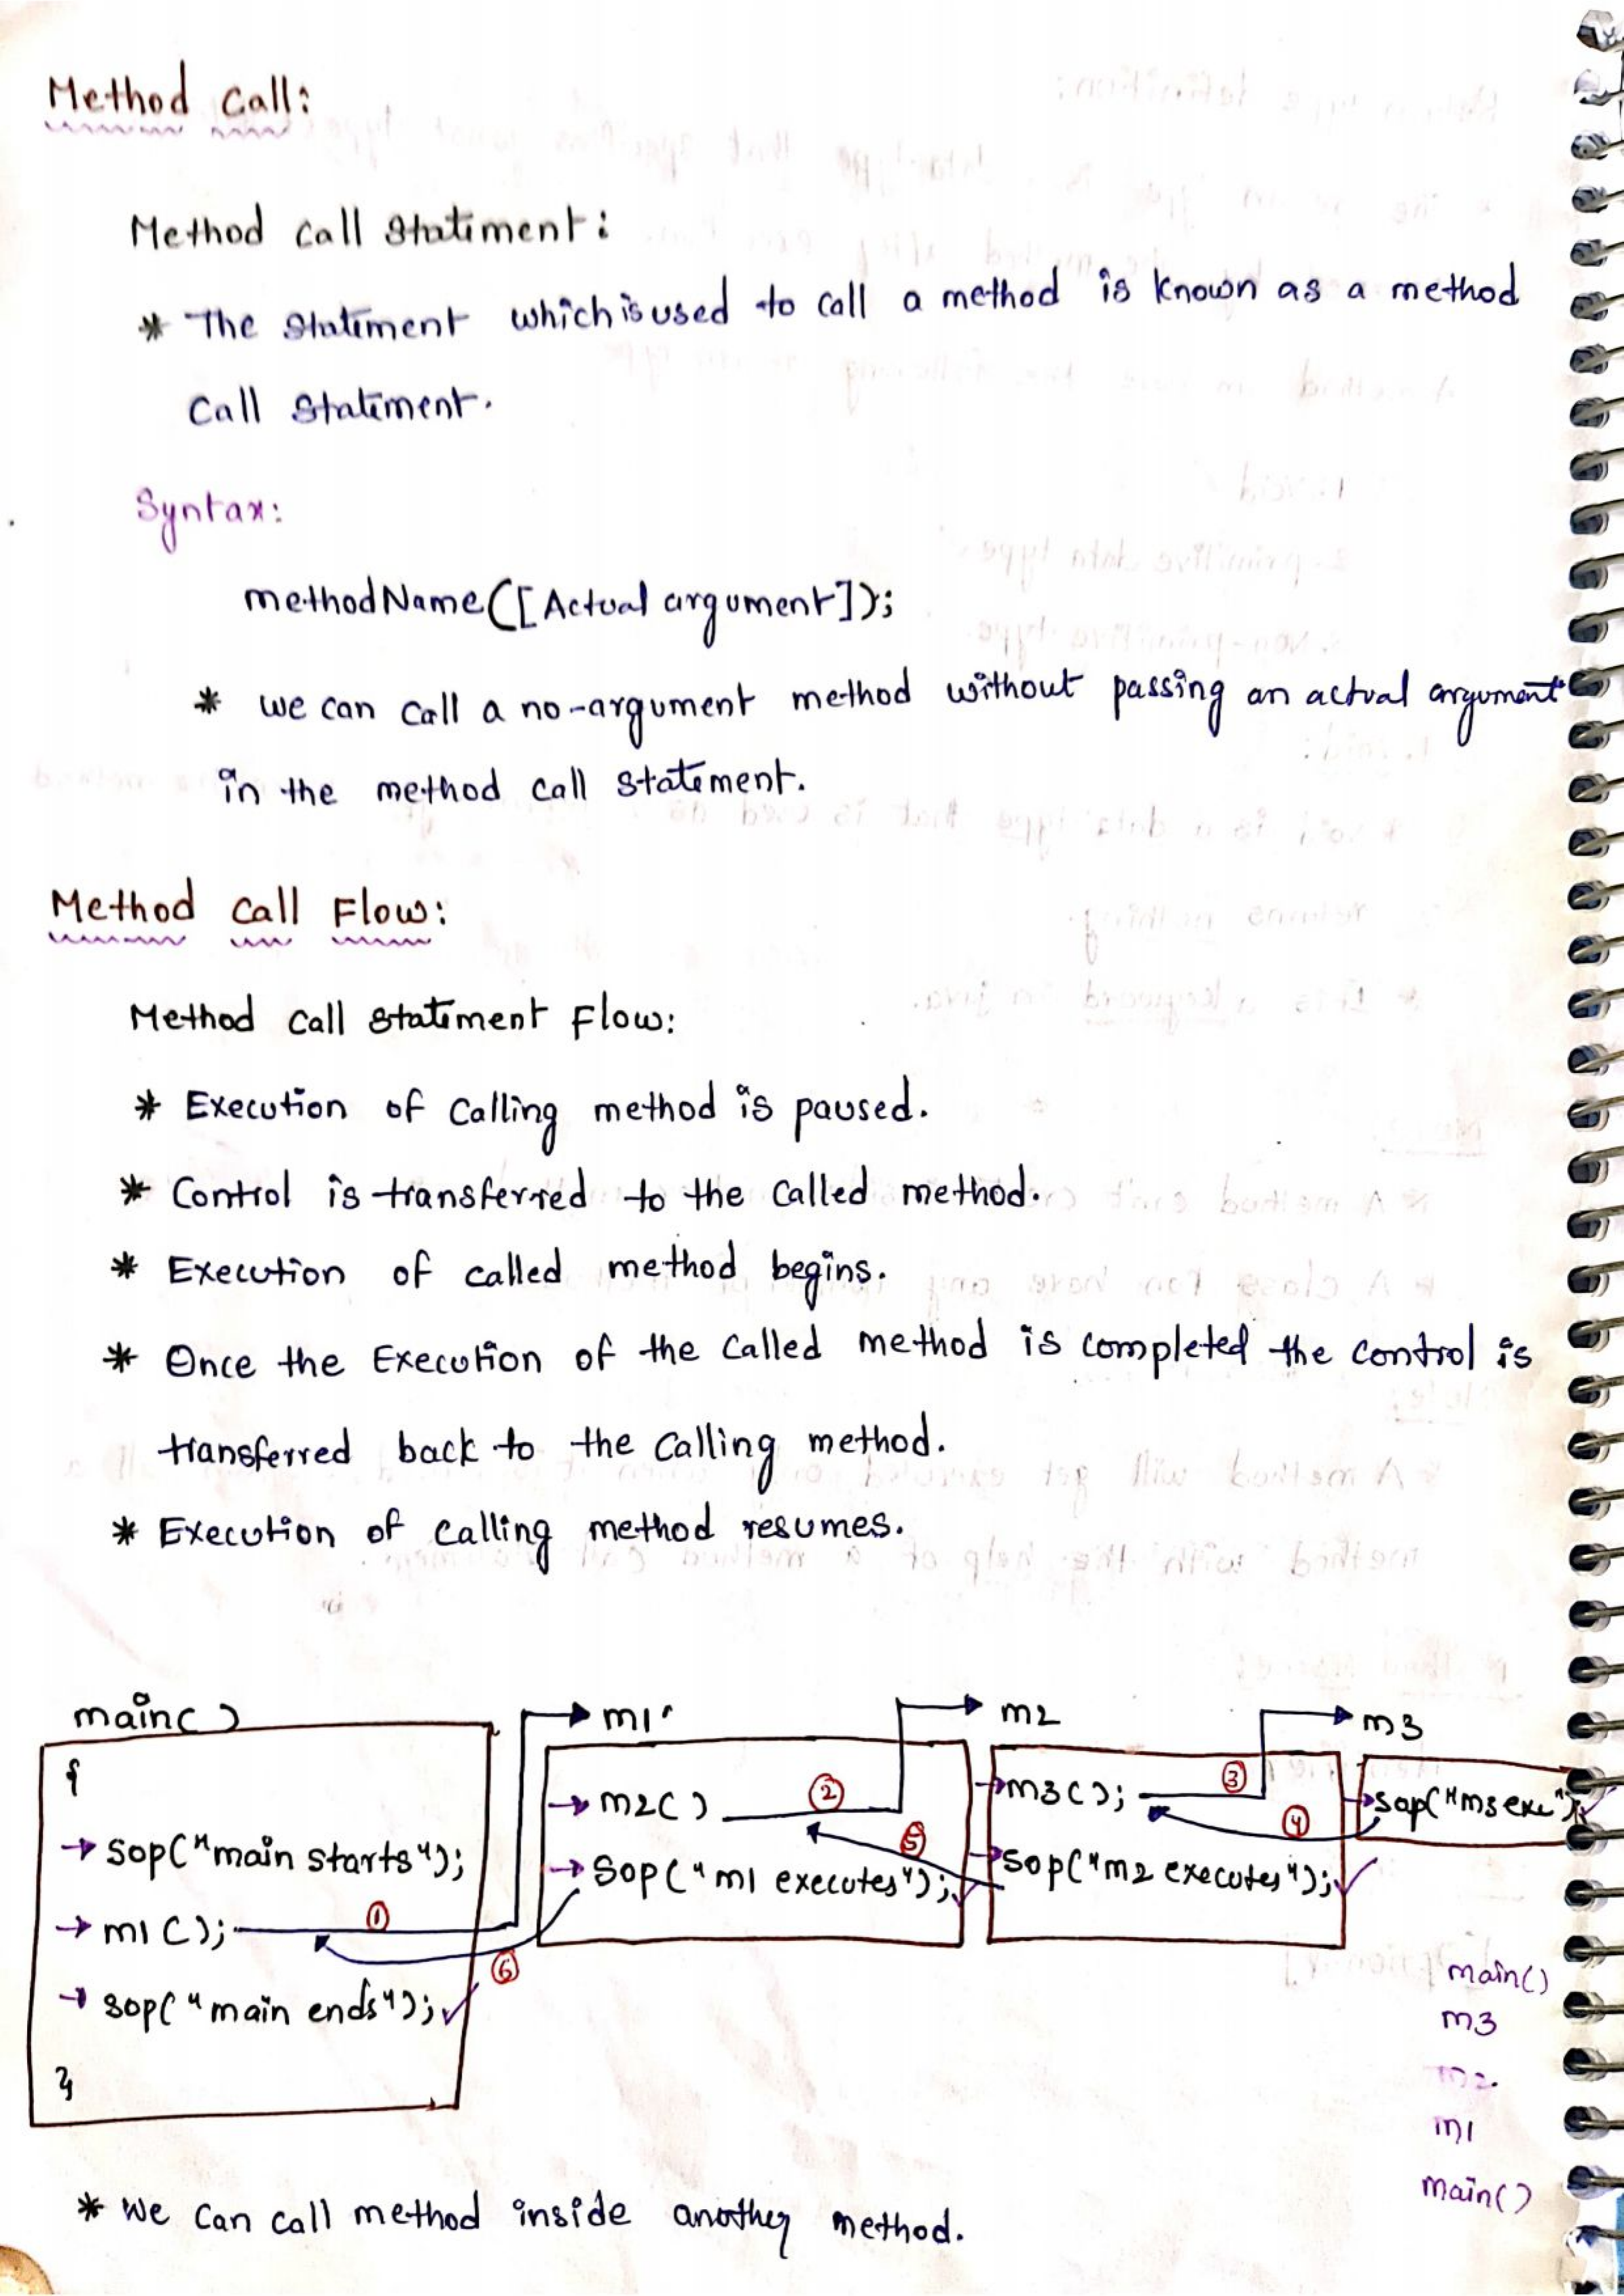 Method Call:
Method call Statement:
* The Statement which is used to call a method is known as a method
Call Statement.
Syntax:
methodName([Actual argument]);
* we can call a no-argument method without passing an actual argument
in the method call statement.
Method call Flow:
Method call statement Flow:
* Execution of calling method is paused.
* Control is transferred to the called method.
* Execution of called method begins.
* Once the Execution of the called method is completed the control is
transferred back to the calling method.
* Execution of calling method resumes.
main()
{
→ sop("main starts");
→ m1();
①
→ sop("main ends");
}
⑥
m1
→ m2()
②
→ sop("m1 executes");
⑤
m2
→ m3();
③
→ sop("m2 executes");
④
m3
→ sop("m3 exe");
main()
m3
m2
m1
main()
* We can call method inside another method.